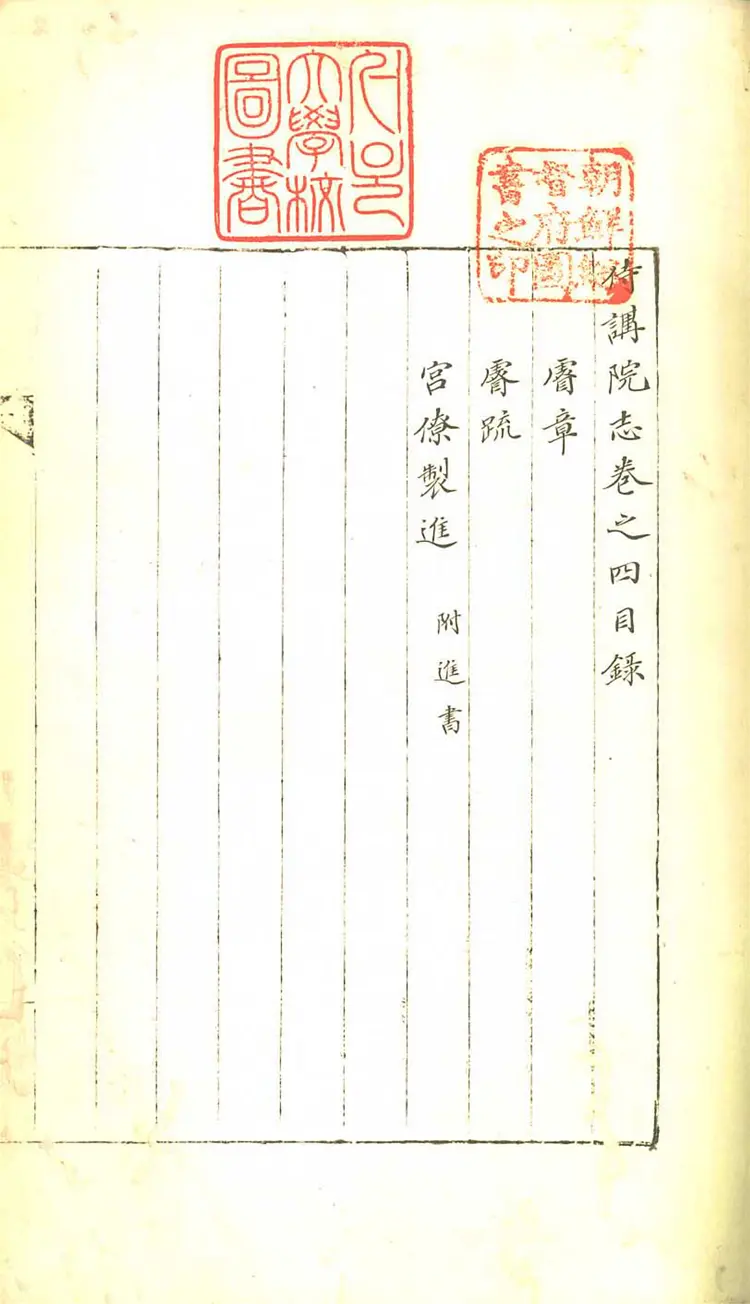 서울
大學校
圖書
朝鮮總
督府圖
書之印
侍講院志卷之四目錄
睿章
睿䟽
宮僚製進 附進書